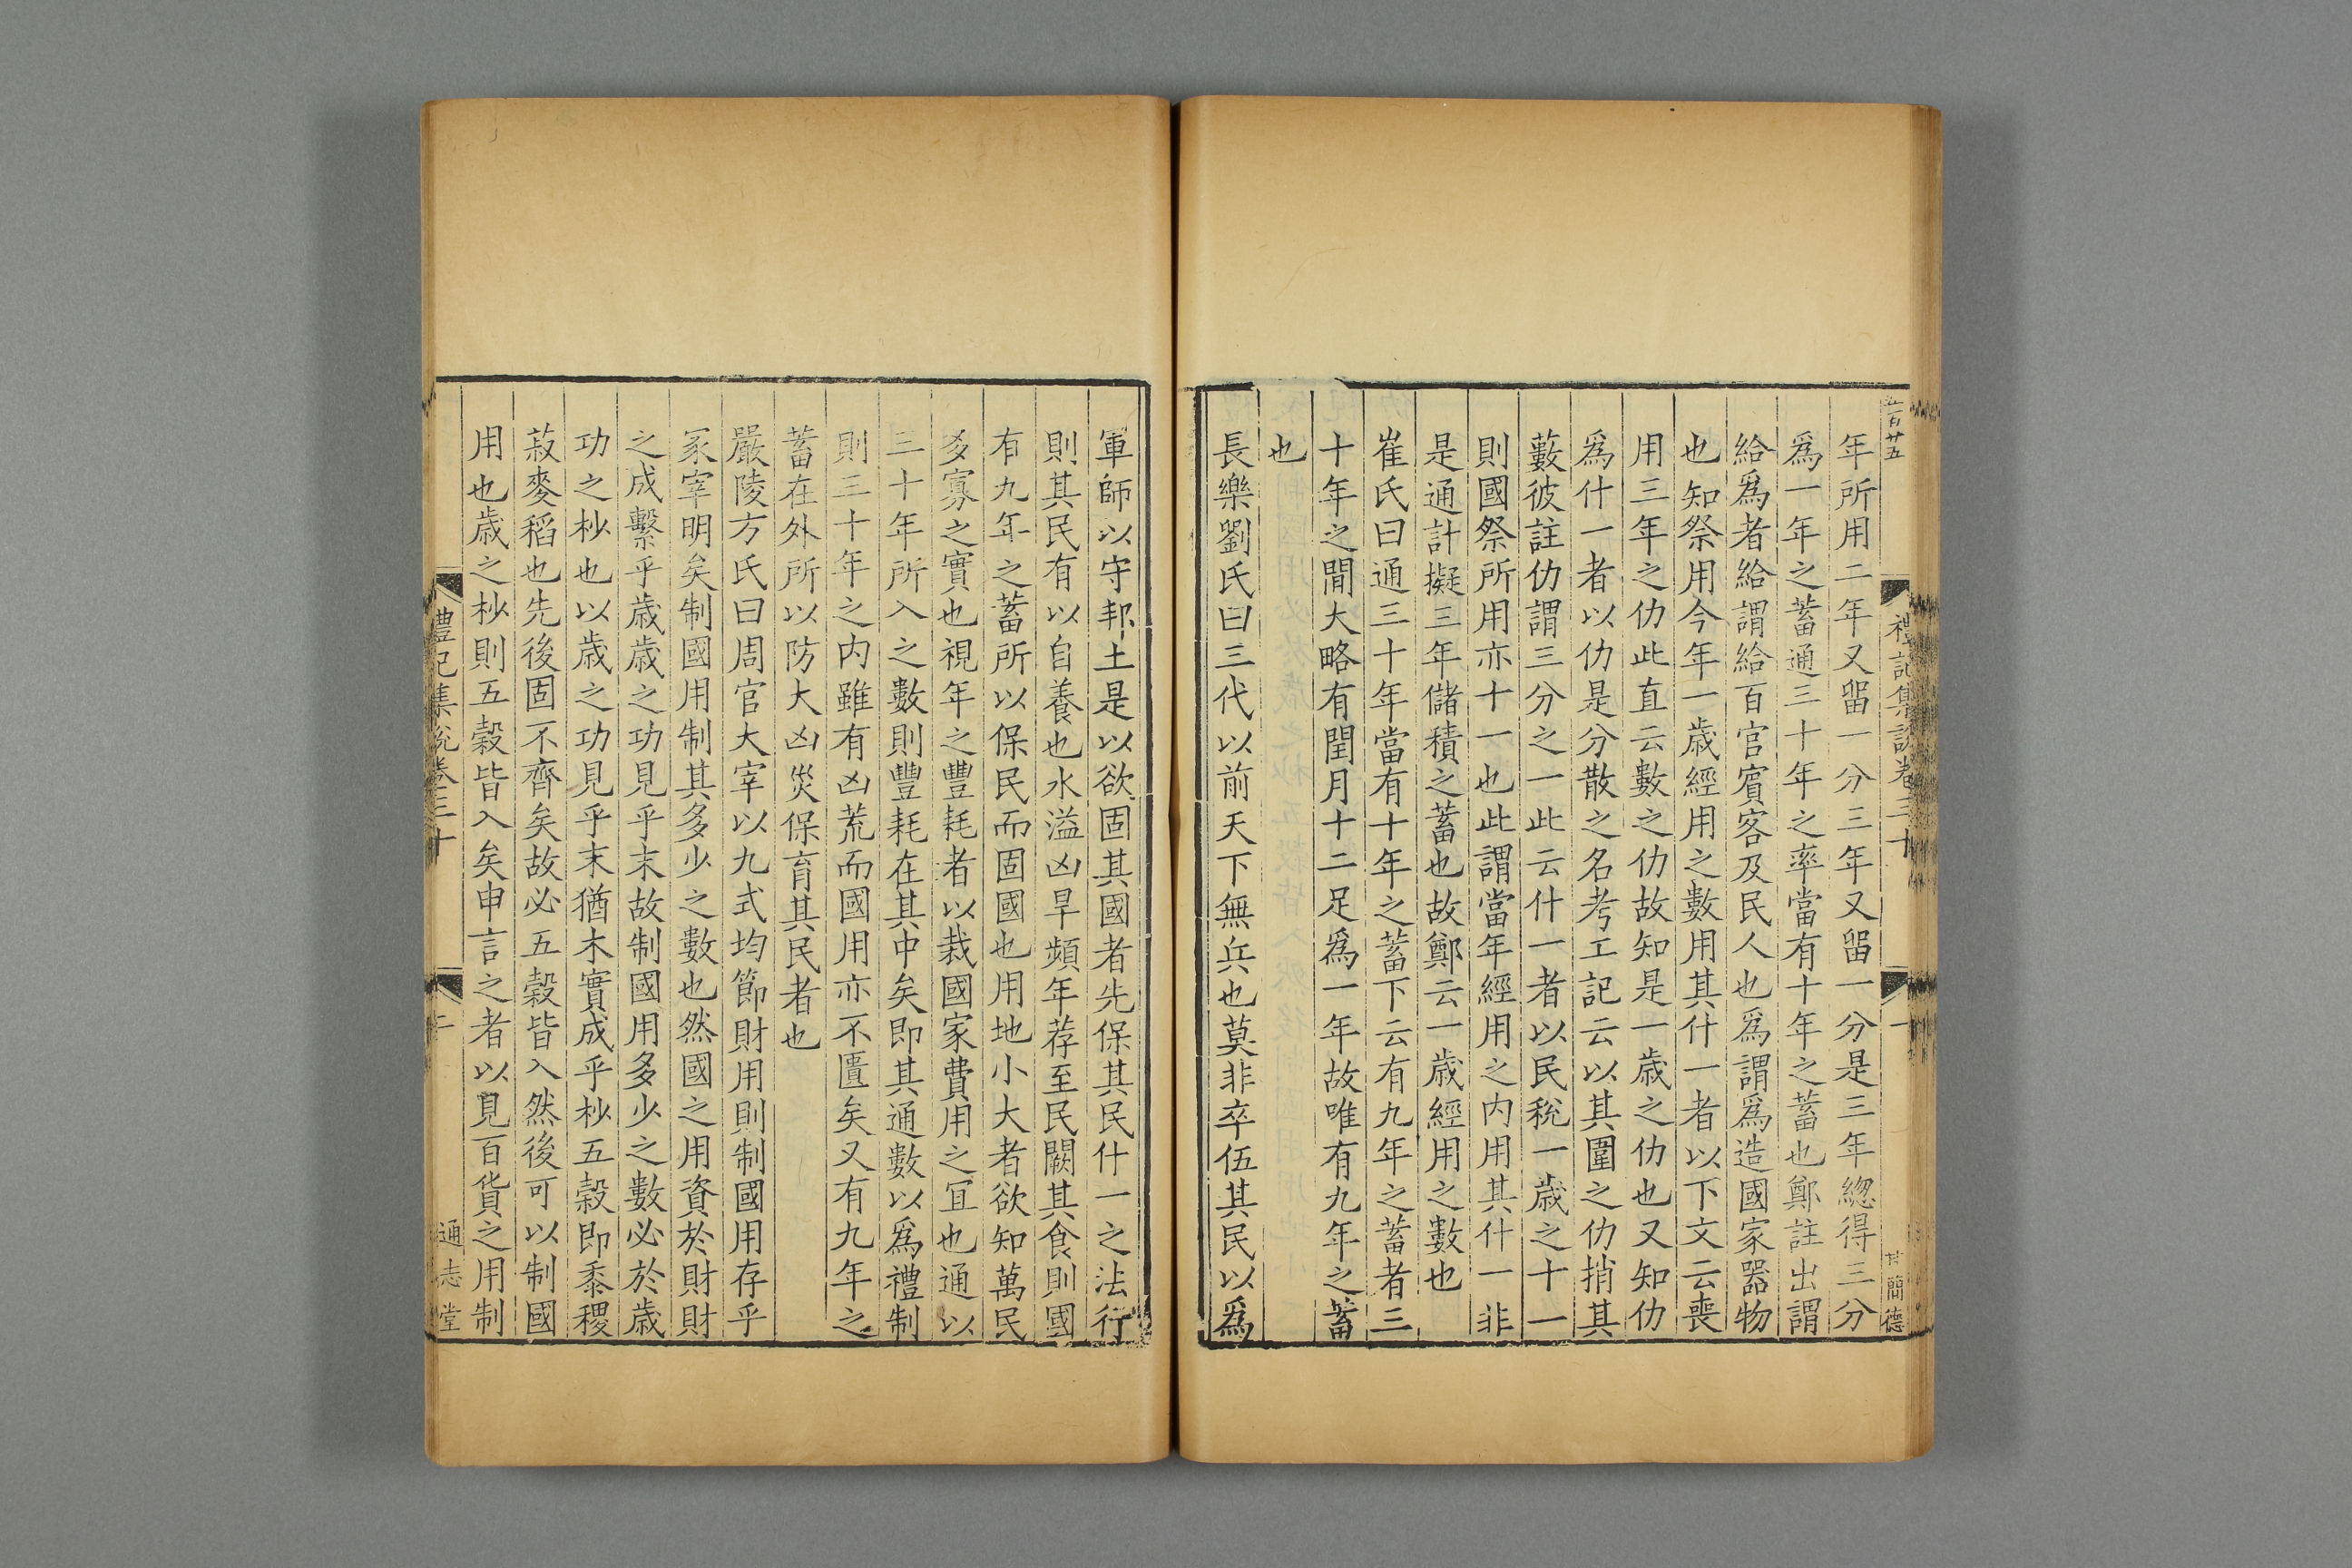 五百廿五
禮記集說卷三十
一
甘簡德
年所用二年又留一分三年又留一分是三年緫得三分
爲一年之蓄通三十年之率當有十年之蓄也鄭註出謂
給爲者給謂給百官賓客及民人也爲謂爲造國家器物
也知祭用今年一歲經用之數用其什一者以下文云喪
用三年之仂此直云數之仂故知是一歲之仂也又知仂
爲什一者以仂是分散之名考工記云以其圍之仂捎其
藪彼註仂謂三分之一此云什一者以民稅一歲之十一
則國祭所用亦十一也此謂當年經用之内用其什一非
是通計擬三年儲積之蓄也故鄭云一歲經用之數也
崔氏曰通三十年當有十年之蓄下云有九年之蓄者三
十年之閒大略有閏月十二足爲一年故唯有九年之蓄
也
長樂劉氏曰三代以前天下無兵也莫非卒伍其民以爲
軍師以守邦土是以欲固其國者先保其民什一之法行
則其民有以自養也水溢凶旱頻年荐至民闕其食則國
有九年之蓄所以保民而固國也用地小大者欲知萬民
多寡之實也視年之豐耗者以裁國家費用之宜也通以
三十年所入之數則豐耗在其中矣即其通數以爲禮制
則三十年之内雖有凶荒而國用亦不匱矣又有九年之
蓄在外所以防大凶災保育其民者也
嚴陵方氏曰周官大宰以九式均節財用則制國用存乎
冢宰明矣制國用制其多少之數也然國之用資於財財
之成繫乎歲歲之功見乎末故制國用多少之數必於歲
功之杪也以歲之功見乎末猶木實成乎杪五穀即黍稷
菽麥稻也先後固不齊矣故必五穀皆入然後可以制國
用也歲之杪則五穀皆入矣申言之者以見百貨之用制
禮記集說卷三十
二
通志堂